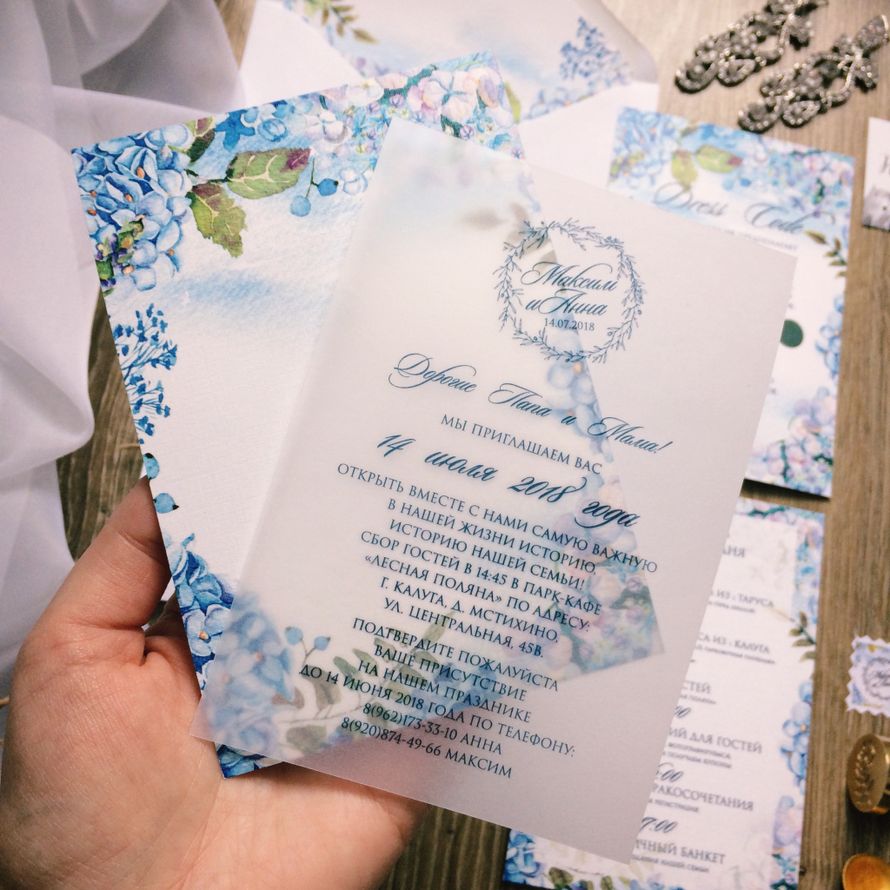 Максим
и Анна
14.07.2018
Дорогие Папа и Мама!
МЫ ПРИГЛАШАЕМ ВАС
14 июля 2018 года
ОТКРЫТЬ ВМЕСТЕ С НАМИ САМУЮ ВАЖНУЮ
В НАШЕЙ ЖИЗНИ ИСТОРИЮ,
ИСТОРИЮ НАШЕЙ СЕМЬИ!
СБОР ГОСТЕЙ В 14:45 В ПАРК-КАФЕ
«ЛЕСНАЯ ПОЛЯНА» ПО АДРЕСУ:
Г. КАЛУГА, Д. МСТИХИНО,
УЛ. ЦЕНТРАЛЬНАЯ, 45В.
ПОДТВЕРДИТЕ ПОЖАЛУЙСТА
ВАШЕ ПРИСУТСТВИЕ
НА НАШЕМ ПРАЗДНИКЕ
ДО 14 ИЮНЯ 2018 ГОДА ПО ТЕЛЕФОНУ:
8(962)173-33-10 АННА
8(920)874-49-66 МАКСИМ
Dress Code
ИЗ Г. ТАРУСА
ИЗ Г. КАЛУГА
ДЛЯ ГОСТЕЙ
БАНКЕТ